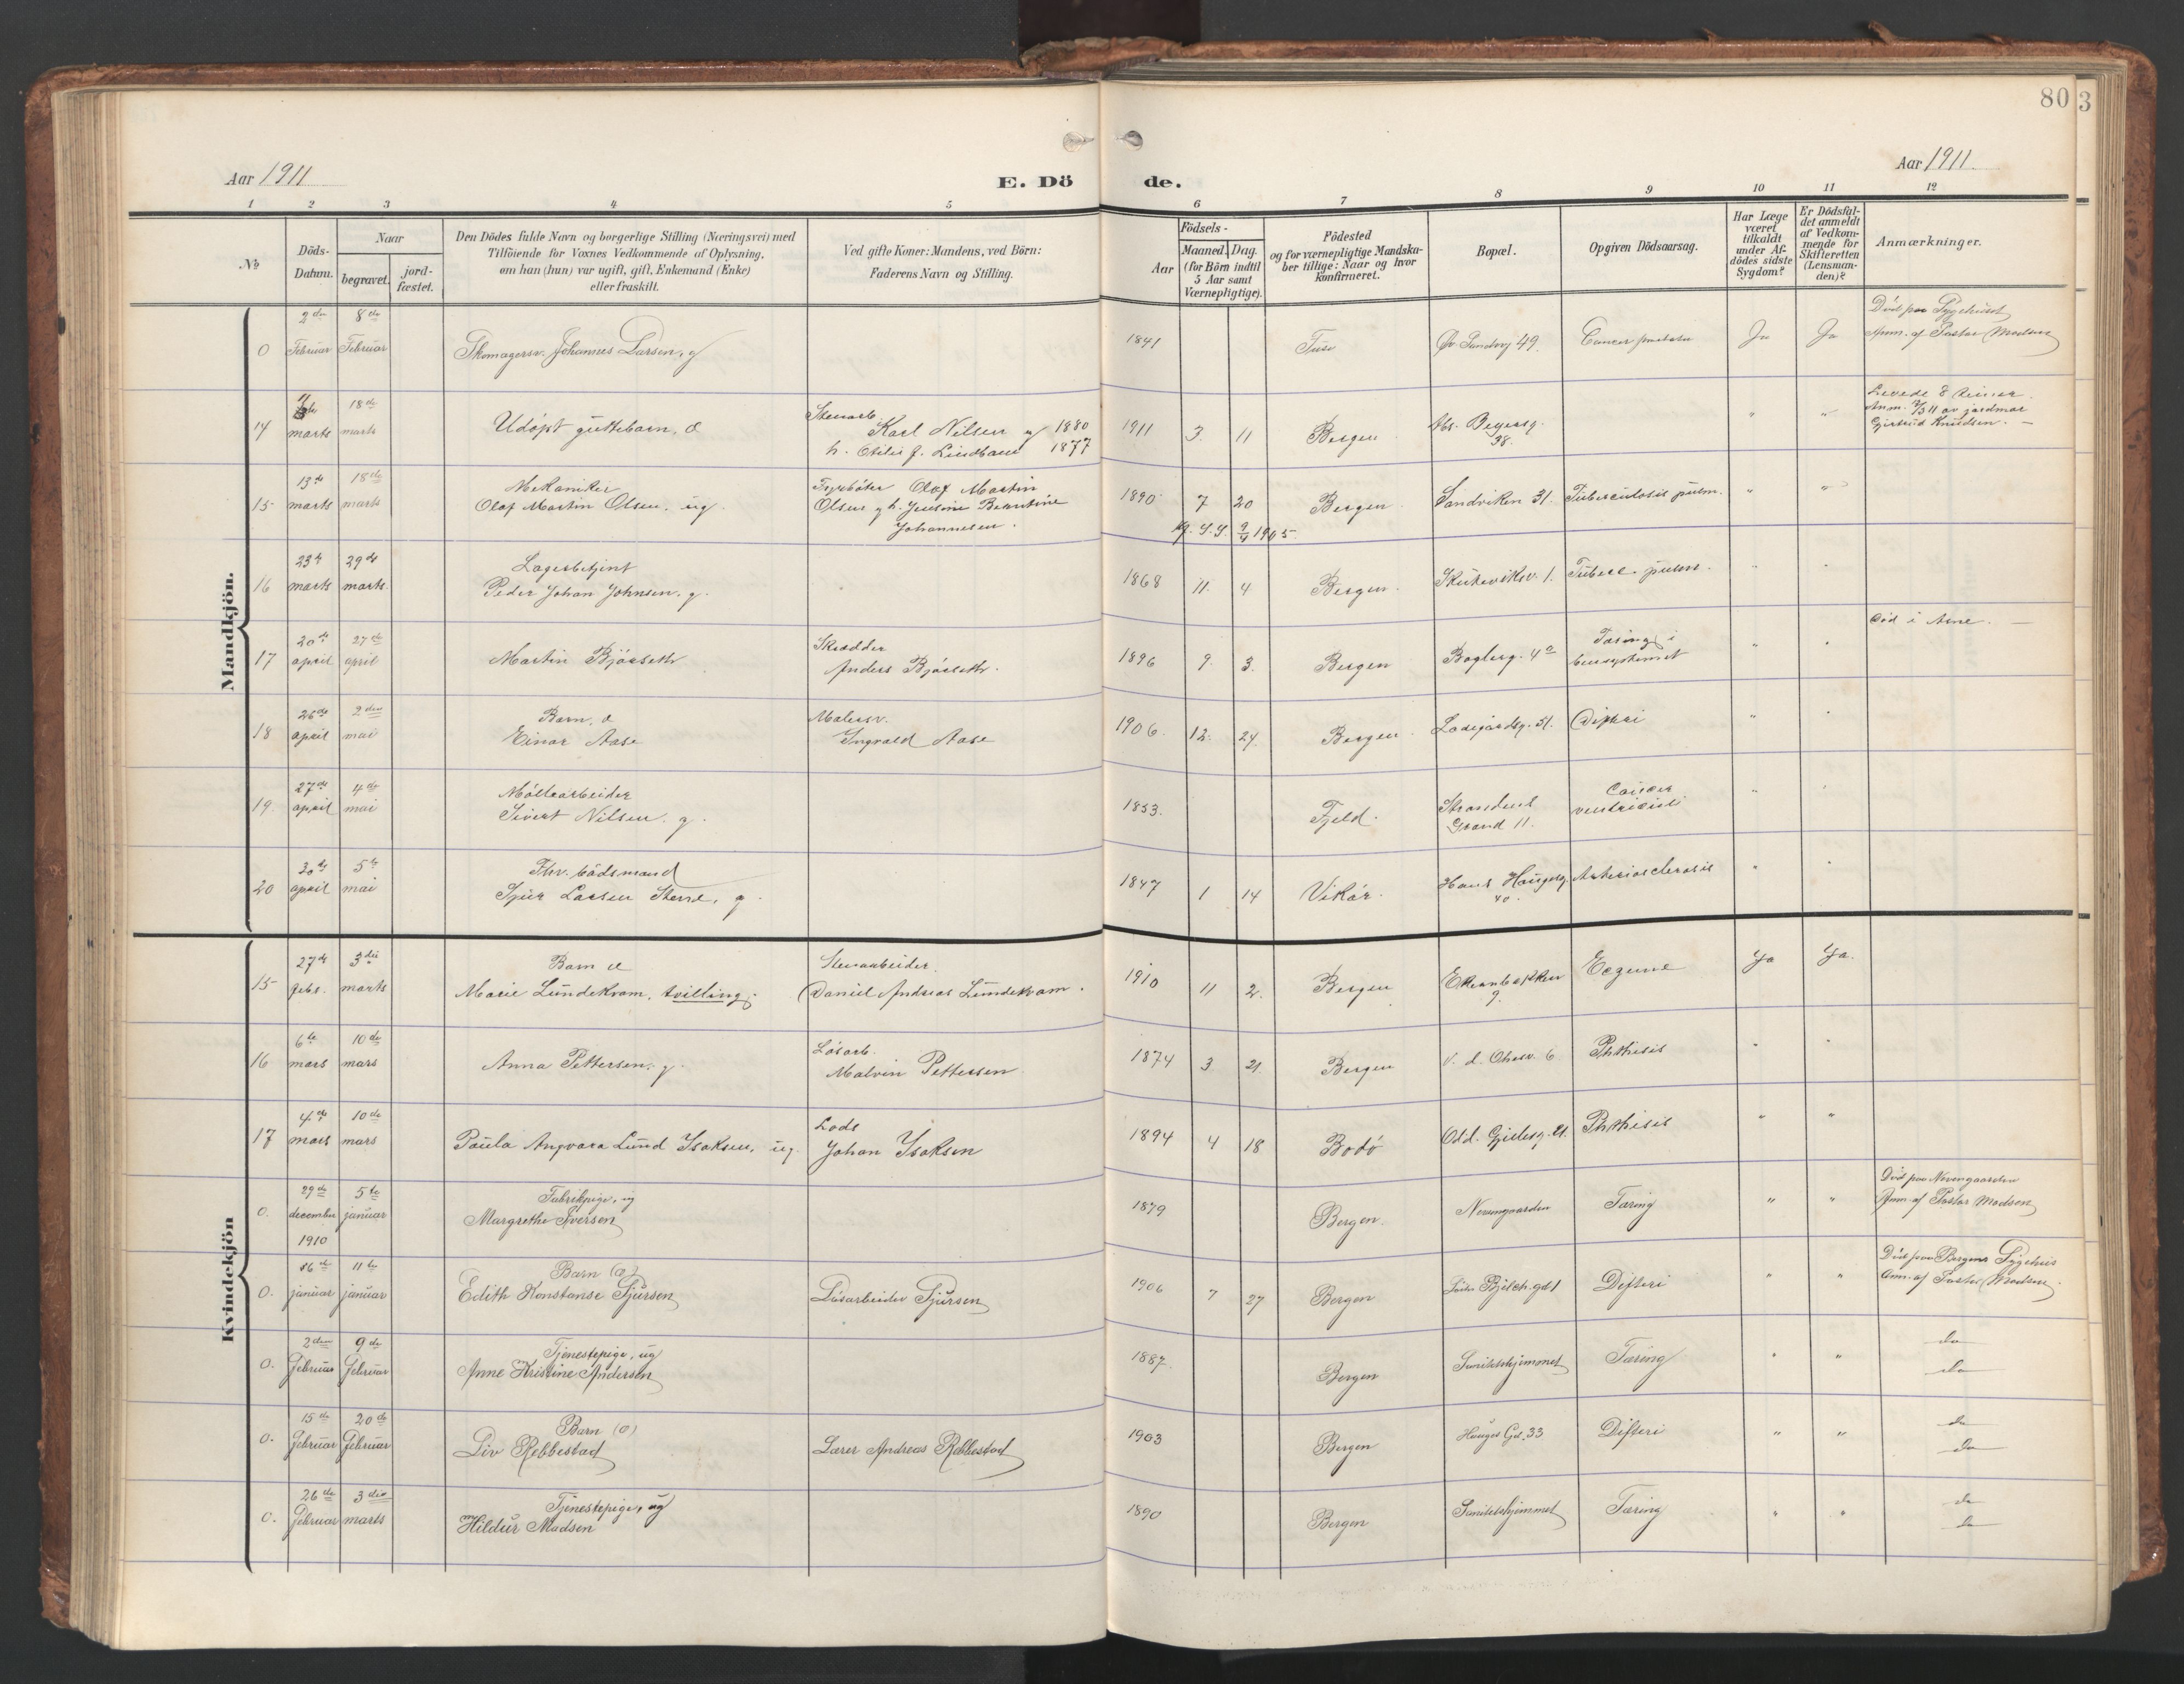 80 3
Aar 1911
E. Dö
de.
Aar 1911.
1 2 3 4 5 6 7 8 9 10 11 12
№
Döds-
Datum.
Naar
begravet.
jord-
fæstet.
Den Dödes fulde Navn og borgerlige Stilling (Næringsvei) med
Tilföiende for Voxnes Vedkommende af Oplysning,
om han (hun) var ugift, gift, Enkemand (Enke)
eller fraskilt.
Ved gifte Koner: Mandens, ved Börn:
Faderens Navn og Stilling.
Födsels-
Aar
Maaned. Dag.
(for Börn indtil
5 Aar samt
Værnepligtige).
Födested
og for værnepligtige Mandska-
ber tillige: Naar og hvor
konfirmeret.
Bopæl.
Opgiven Dödsaarsag.
Har Læge
været
tilkaldt
under Af-
dödes sidste
Sygdom?
Er Dödsfal-
det anmeldt
af Vedkom-
mende for
Skifteretten
(Lensman-
den)?
Anmærkninger.
Mandkjön.
0 2den Februar 8de Februar Skomagersv. Johannes Larsen, g 1841 Øv. Sandvg 49. Cancer Ja Ja Död paa Sygehuset
Anm. af Pastor Madsen
14 marts 18de marts Udöpt guttebarn, Stenarb.
Karl Nilsen g 1880
h. Otilie f. Lindbaum 1877
1911 3. 11 Bergen 38. " " Levede 8 timer.
Anm. 7/3 11 av jordmor
Gjertrud Knudsen. —
15 13de marts 18de marts Mekaniker
Olaf Martin Olsen, ug. Fyrböter Olaf Martin
Olsen g h. Jensine Berntine
Johannesen.
1890 7 20 Bergen Sandviken 31. Tuberculosis pulm. " "
1905.
16 23de marts 29de marts Lagerbetjent
Peder Johan Johnsen. g. 1868 11. 4 Bergen. Skuteviksv. 1. Tuberc. pulm. " "
17 20de april 27de april Martin Bjørseth Skrædder
Anders Bjørseth. 1896 9. 3. Bergen 4a Tæring i
bensystemet " " död i Arne. —
18 26de april 2den mai Barn,
Einar Aase Malersv.
Ingvald Aase 1906. 12. 24. Bergen. Ladegårdsg. 51. Difteri " "
19. 27de april 4de mai Möllearbeider
Sivert Nilsen. g. 1853. Fjeld. Strandens
Grand 11. Cancer
ventriculi " "
20 30de april 5te mai Fhv. bådsmand
Sjur Larsen Sterre, g. 1847 1 14 Vikör. Hans Haugesg.
40. Arteriosclerosis " "
Kvindekjön
15 27de febr. 3die marts Barn
Marie Lundekvam, tvilling. Stenarbeider.
Daniel Andreas Lundekvam. 1910 11 2. Bergen
9. Eczeme Ja Ja.
16 6te mars 10de mars Anna Pettersen, g. Løsarb.
Malvin Pettersen 1874 3. 21. Bergen 6 Phthisis " "
17 4de mars 10de mars Paula Angvara Lund Isaksen, ug. Lods
Johan Isaksen 1894 4 18 Bodö Odd. Gjelesg. 21. Phthisis " "
0. 29de december 1910 5te januar Fabrikpige, ug
Margrethe Iversen 1879 Bergen. Nevengaarden Tæring " " Död paa Nevengaarden
Anm. af Pastor Madsen
0. 6te januar 11te januar Barn
Edith Konstanse Sjursen Løsarbeider Sjursen 1906 7 27 Bergen Difteri " " Död paa Bergens Sygehus
Anm. af Pastor Madsen.
0. 2den Februar 9de Februar Tjenestepige, ug
Anne Kristine Andersen 1887. Bergen Sanitetshjemmet Tæring " " do
do
0. 15de Februar 20de Februar Barn
Liv Rebbestad Lærer Andreas Rebbestad 1903 Bergen Hauges Gd. 33 Difteri " " do
do
0. 26de Februar 3die marts Tjenestepige, ug
Hildur Madsen 1890 Bergen Sanitetshjemmet Tæring " " do
do